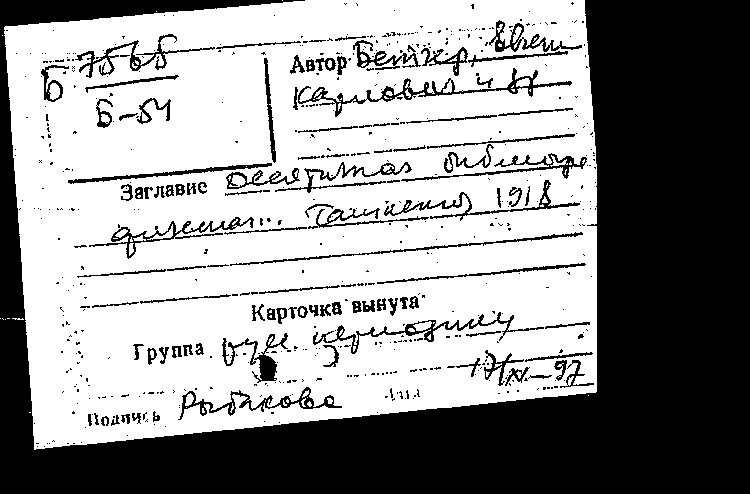 Б 7565
Б-54
Автор Беткер, Евген
Карлович и др
Заглавие Десятичная библиогра
фическая... Ташкент, 1918
Карточка вынута
Группа русс.
17/IX-97
Подпись Рыбакова